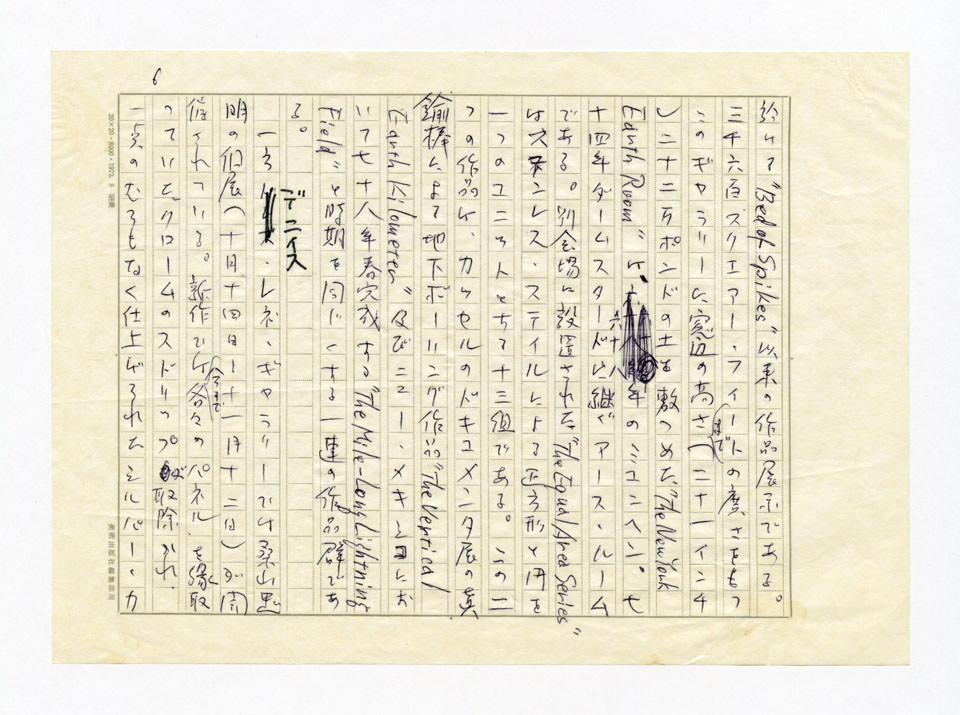 6
於ける"Bed of Spikes"以来の作品展示である。
三千六百スクエアー・フィートの広さをもつ
このギャラリーに窓辺の高さ(二十一インチ
まで
)二十二万ポンドの土を敷つめた"The New York
Earth Room"は、
六十八年のミュンヘン。七
十四年ダームスタードに継ぐアース・ルーム
である。別会場に設置された"The Equal Area Series"
はステンレス・スティルによる正方形と円を
一つのユニットとする十三組である。この二
つの作品は、カッセルのドキュメンタ展の真
鍮棒による地下ボーリング作品"The Vertical
Earth Kilometer"及びニュー・メキシコにお
いて七十八年春完成する"The Mile-Long Lightning
Field"と時期を同じくする一連の作品群であ
る。
一方
デニス
・レネ・ギャラリーでは桑山忠
明の個展(十月十四日—十一月十二日)が開
催されている。新作では
今まで
各々のパネルを縁取
っていたクロームのストリップが取除かれ、
一点のむらもなく仕上げられたシルバー・カ
20×20・8000・1973.
美術出版社編集部用